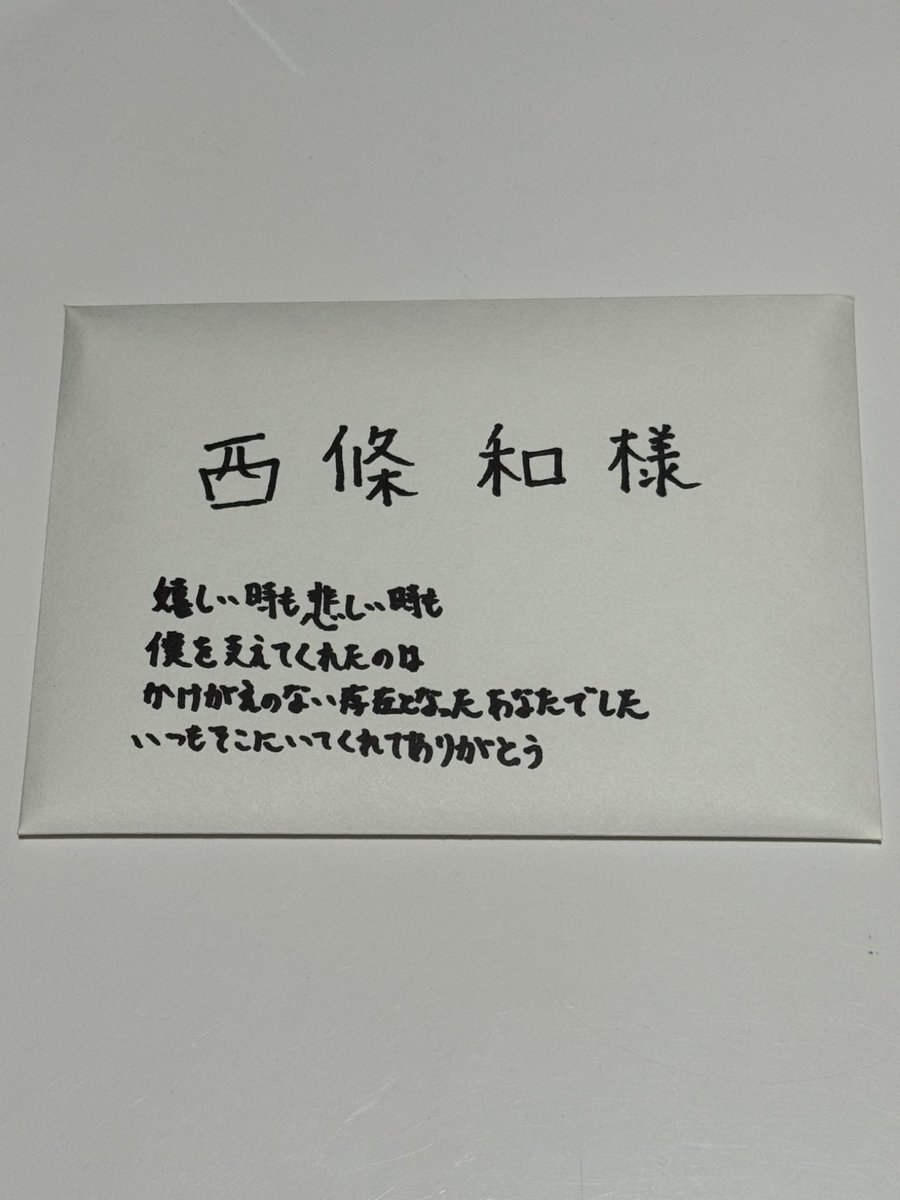 西條 和様
嬉しい時も悲しい時も
僕を支えてくれたのは
かけがえのない存在となったあなたでした
いつもそこにいてくれてありがとう